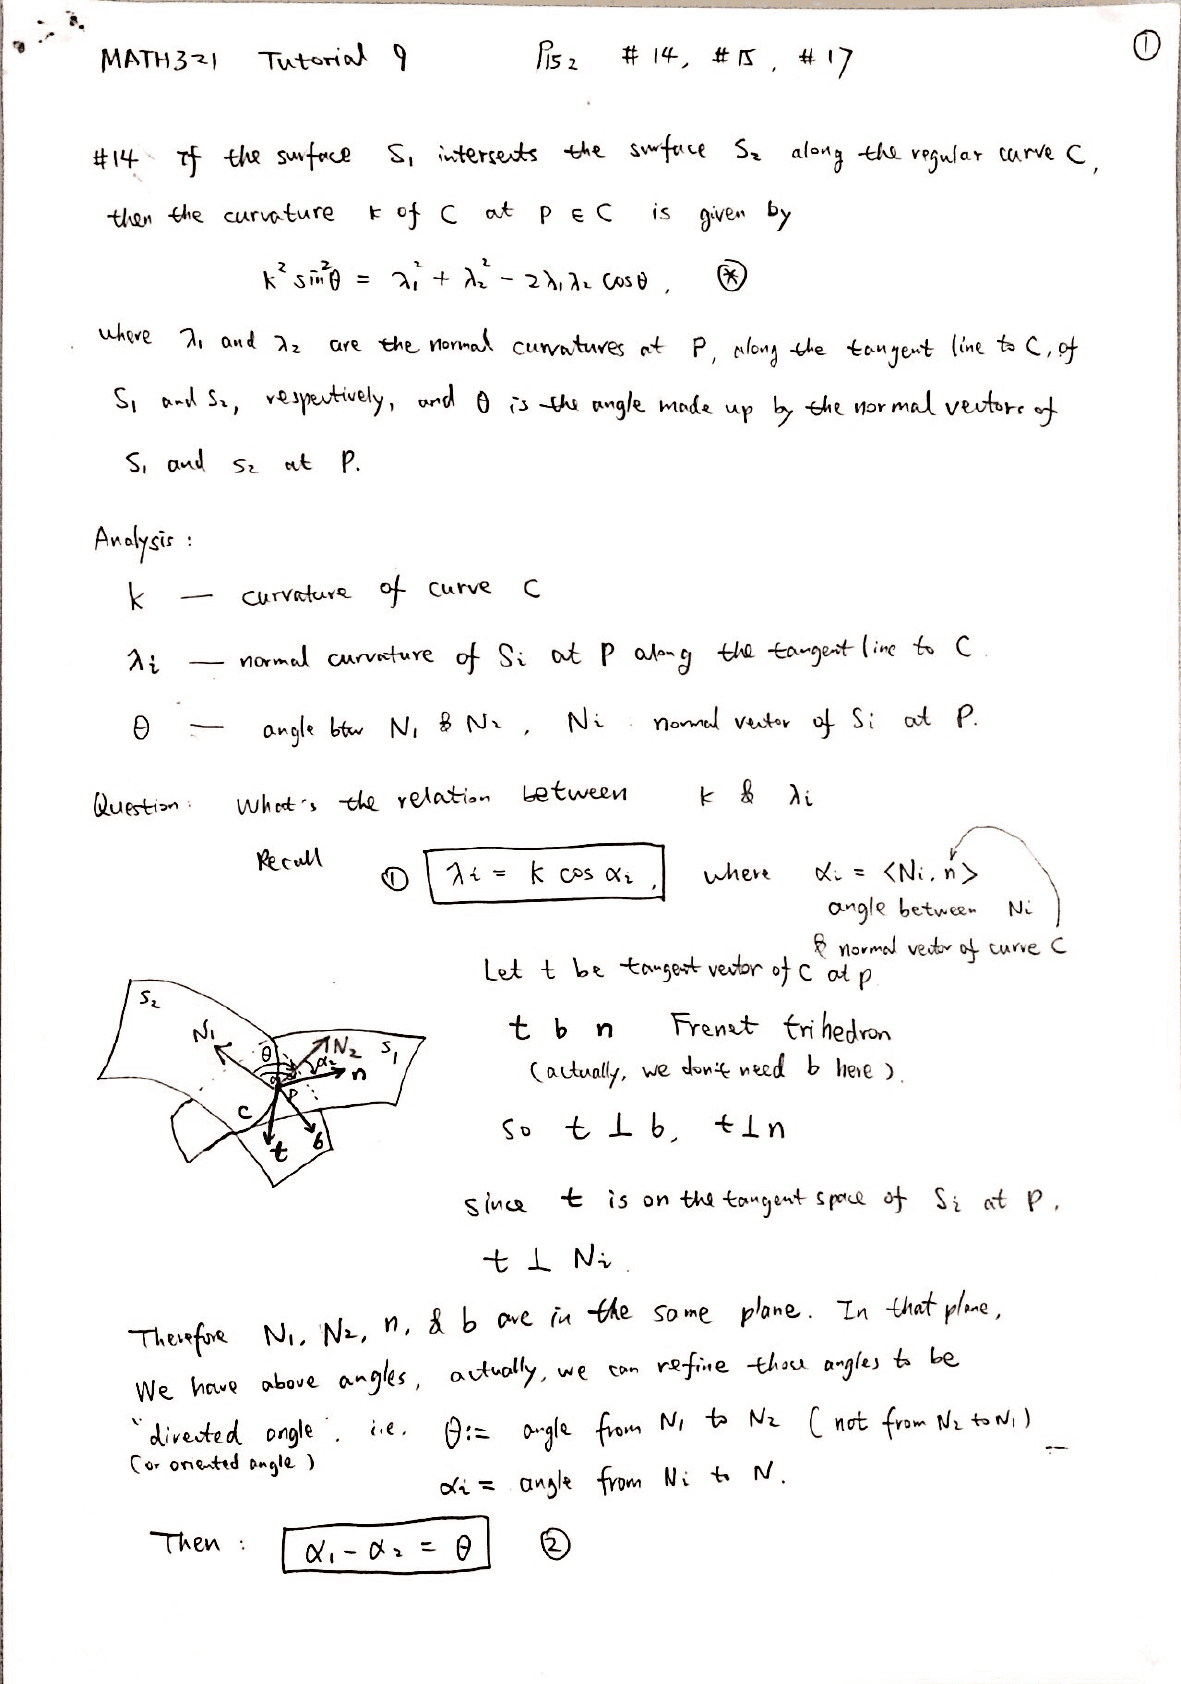 MATH321 Tutorial 9 P152 #14, #15, #17 ①
#14 If the surface S₁ intersects the surface S₂ along the regular curve C,
then the curvature k of C at p ∈ C is given by
k² sin²θ = λ₁² + λ₂² - 2λ₁λ₂ cosθ, ⊛
where λ₁ and λ₂ are the normal curvatures at P, along the tangent line to C, of
S₁ and S₂, respectively, and θ is the angle made up by the normal vectors of
S₁ and S₂ at P.
Analysis:
k — curvature of curve C
λi — normal curvature of Si at P along the tangent line to C.
θ — angle btw N₁ & N₂, Ni normal vector of Si at P.
Question: What's the relation between k & λi
Recall ① λi = k cos αi, where αi = <Ni, n>
angle between Ni
& normal vector of curve C
Let t be tangent vector of C at p
t b n Frenet trihedron
(actually, we don't need b here).
so t ⊥ b, t ⊥ n
since t is on the tangent space of Si at P,
t ⊥ Ni.
S₂
N₁
θ
N₂
S₁
α₂
n
P
C
t
b
Therefore N₁, N₂, n, & b are in the same plane. In that plane,
We have above angles, actually, we can refine those angles to be
"directed angle", i.e. θ:= angle from N₁ to N₂ (not from N₂ to N₁)
(or oriented angle)
αi = angle from Ni to N.
Then: α₁ - α₂ = θ ②